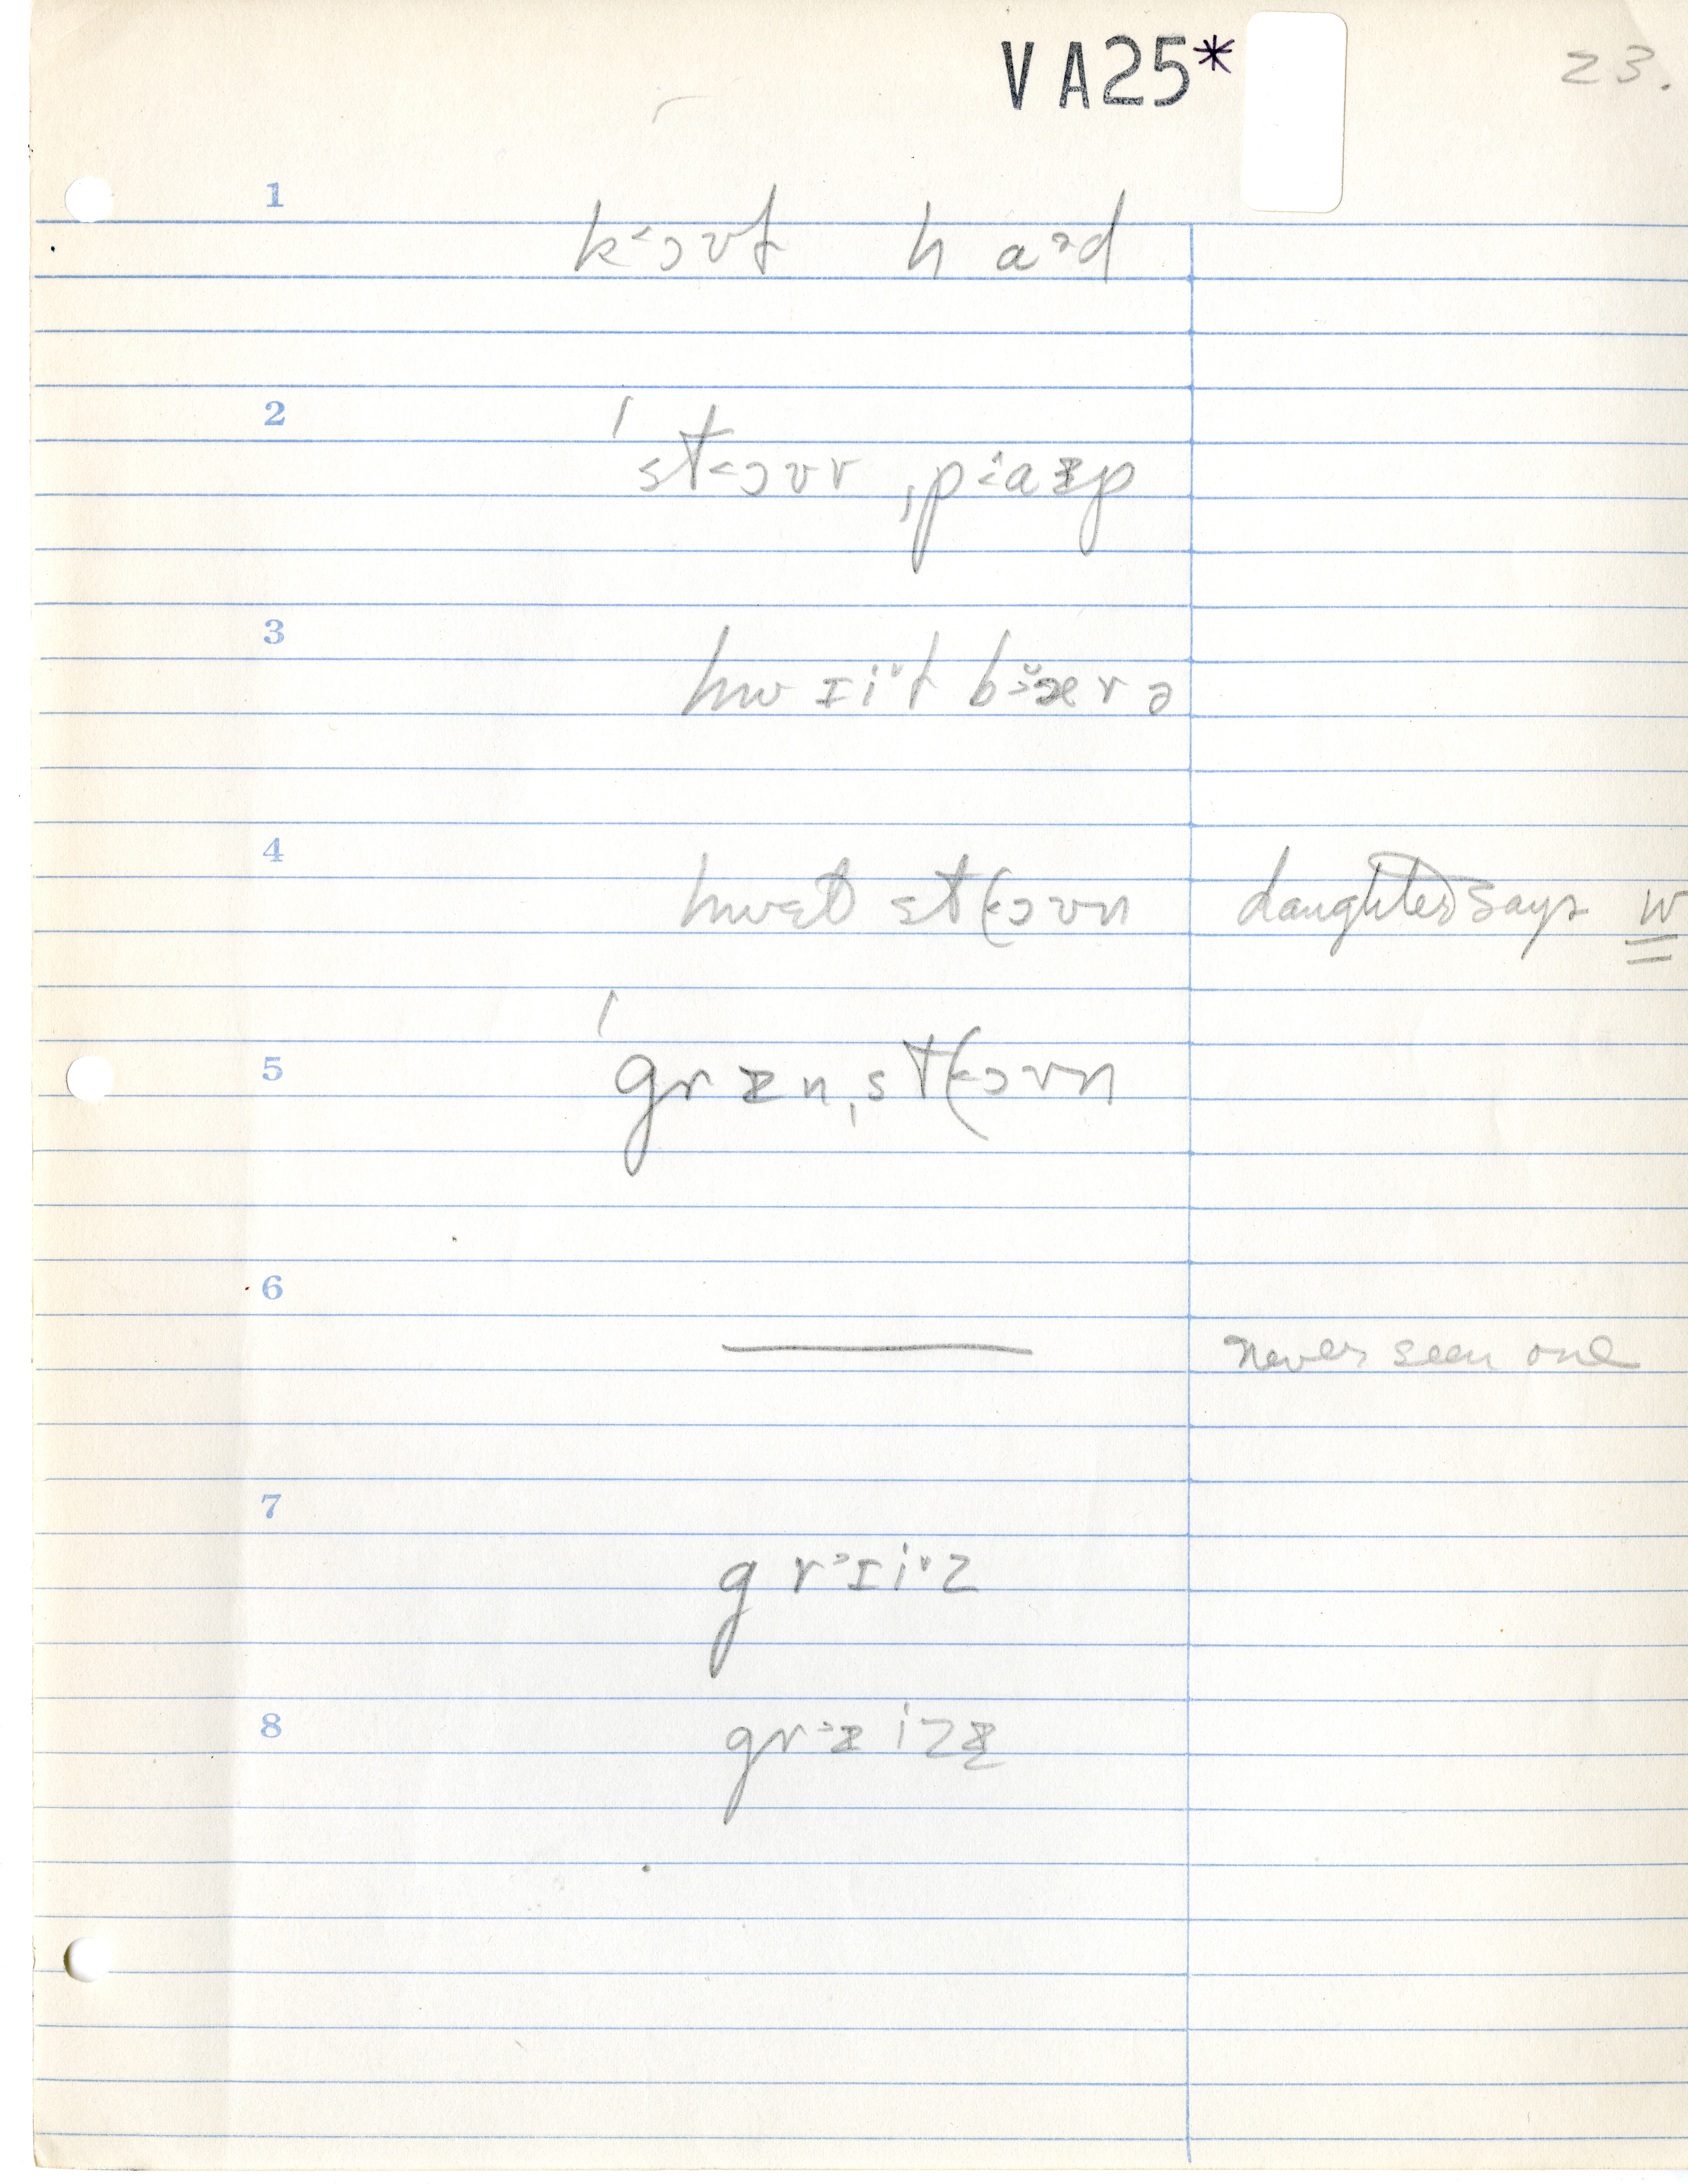 VA25* 23.
1
k˂ɔʊt haəd
2
ˈst˂ɔʊv ˌp˂aɪp
3
hwɪiˇt b˃æˇrə
4
hwɛt st(˂ɔʊn daughter says w
5
ˈgraɪn ˌst(˂ɔʊn
6
never seen one
7
gr˃ɪiˇz
8
gr˃ɪizɪ